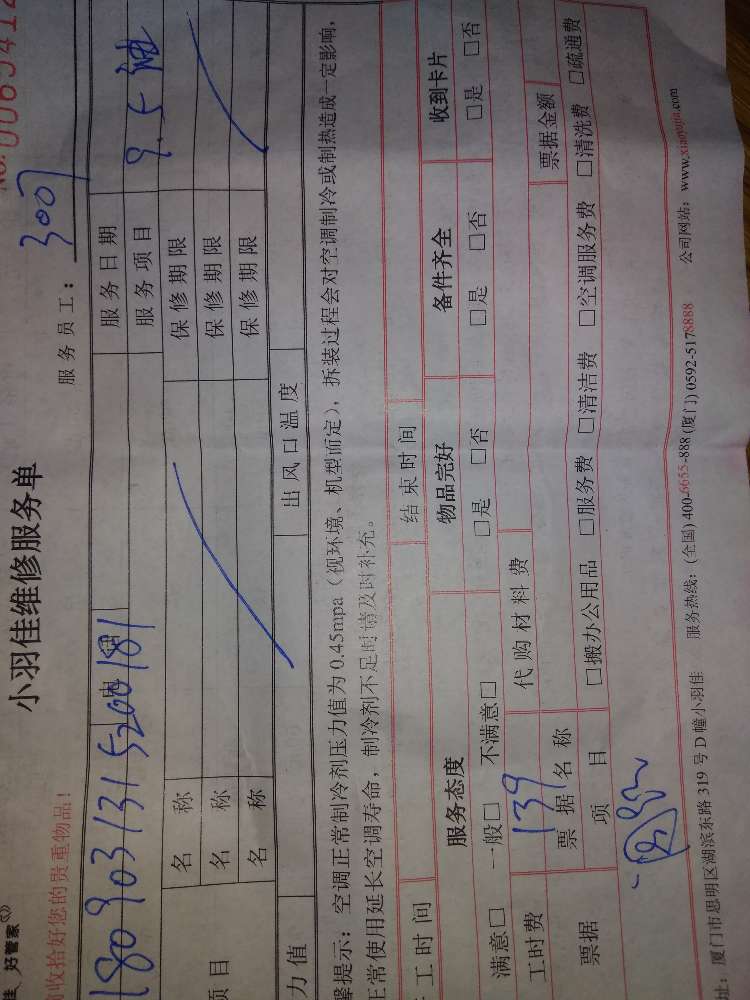 好管家
NO.0065412
小羽佳维修服务单
收拾好您的贵重物品！ 服务员工：3007
1809031315200181 电话 服务日期
服务项目 9.5
名称 保修期限
名称 保修期限
项目 名称 保修期限
力值 出风口温度
馨提示：空调正常制冷剂压力值为0.45mpa（视环境、机型而定），拆装过程会对空调制冷或制热造成一定影响，
正常使用延长空调寿命，制冷剂不足时请及时补充。
工时间 结束时间
服务态度 物品完好 备件齐全 收到卡片
满意□ 一般□ 不满意□ □是 □否 □是 □否 □是 □否
工时费 139 代购材料费
票据 票据名称 票据金额
项目 □搬办公用品 □服务费 □清洁费 □空调服务费 □清洗费 □疏通费
址：厦门市思明区湖滨东路319号D幢小羽佳 服务热线：(全国)400-6655-888(厦门)0592-5178888 公司网站：www.xiaoyujia.com